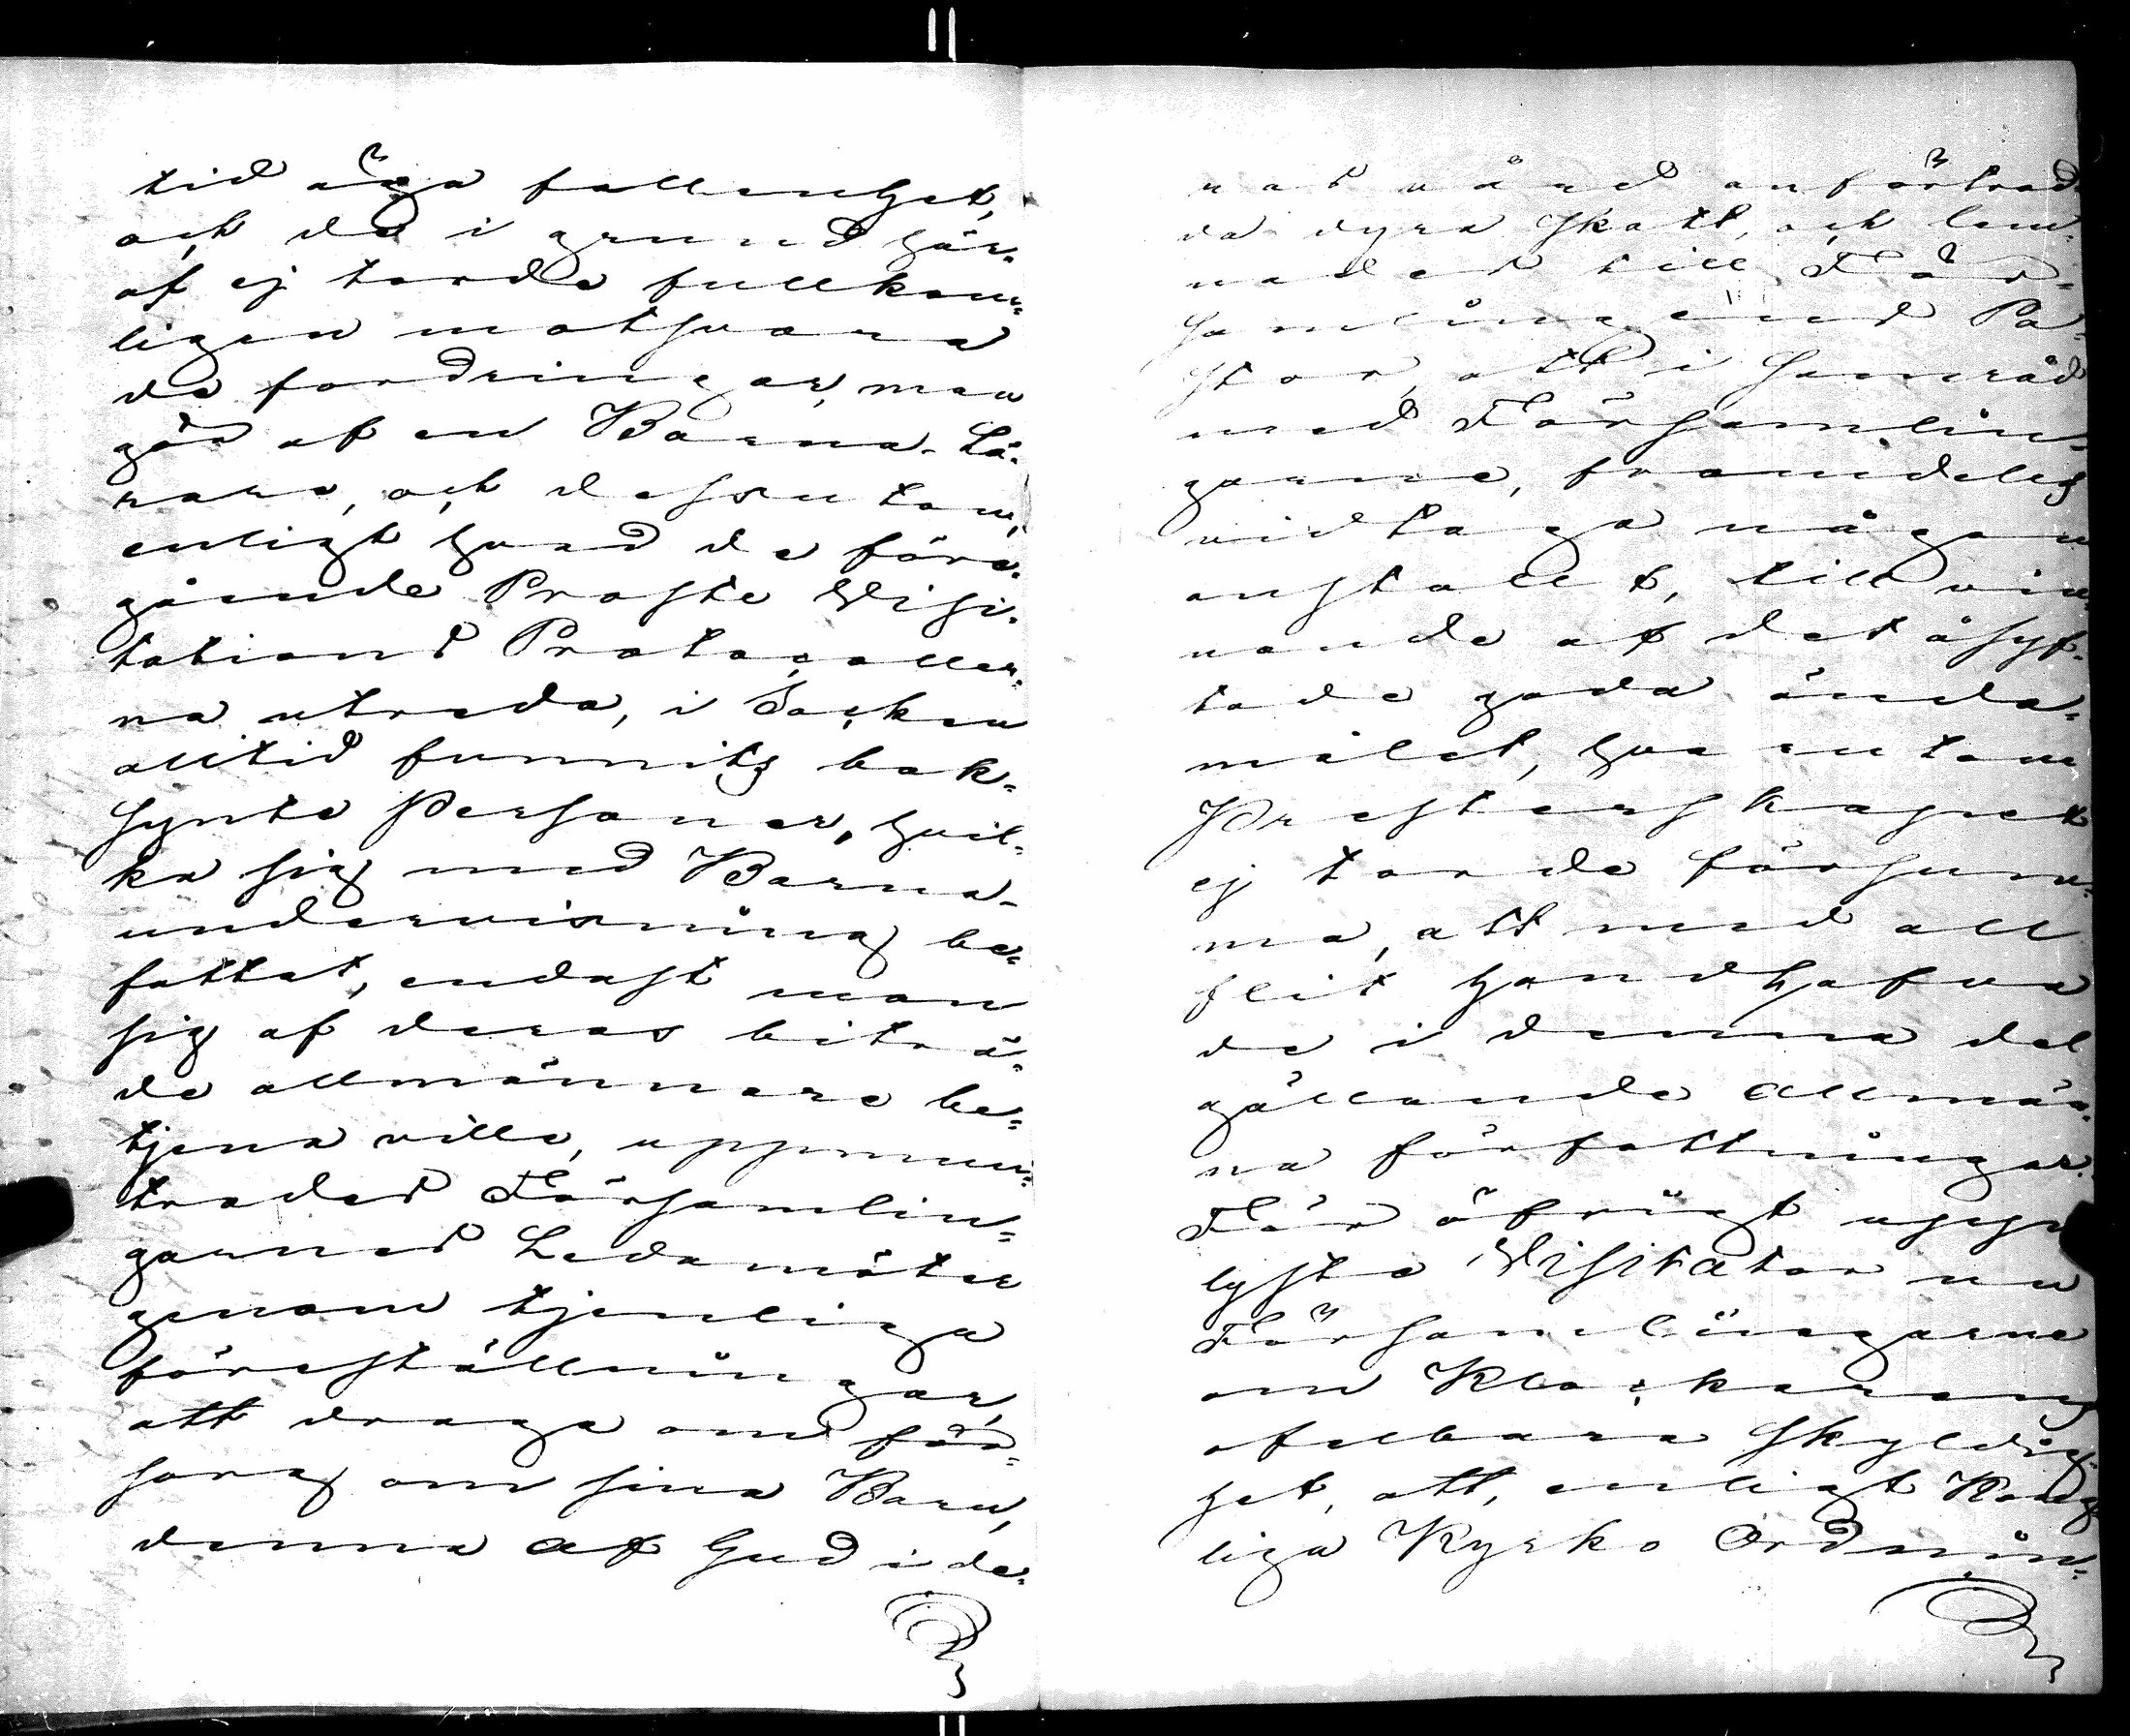 tid äga fallenhet,
och de i grund här-
af ej torde fullkom-
ligen motsvara
de fordringar, man
gör af en Barna-Lä-
rare, och dessutom,
enligt hvad de före-
gående Proste Visi-
tations Protocoller-
na utreda, i Socken
alltid funnits bok-
synte Personer, hvil-
ka sig med Barna-
undervisning be-
fattat, endast man
sig af deras biträ-
de allmännare be-
tjena ville, uppmun-
trades Församlin-
garnes Ledamöter
genom tjenliga
föreställningar,
att draga om för-
sorg om sina Barn,
denna af Gud i de-
ras vård anförtrod-
da dyra skatt, och lem-
nades till För-
samlingens Pa-
stor, att i samråd
med Församlin-
garne, framdeles
vidtaga någon
anstallt, till vin-
nande af det åsyf-
tade goda ända-
målet, hvarutom
Presterskapet
ej torde försum-
ma, att med all
flit handhafva
de i denna del
gällande allmän-
na författningar.
För öfrigt upp-
lyste Visitator nu
Församlingarne
om Klockarens
ofelbara skyldig-
het, att, enligt Kong-
liga Kyrko Ordnin-